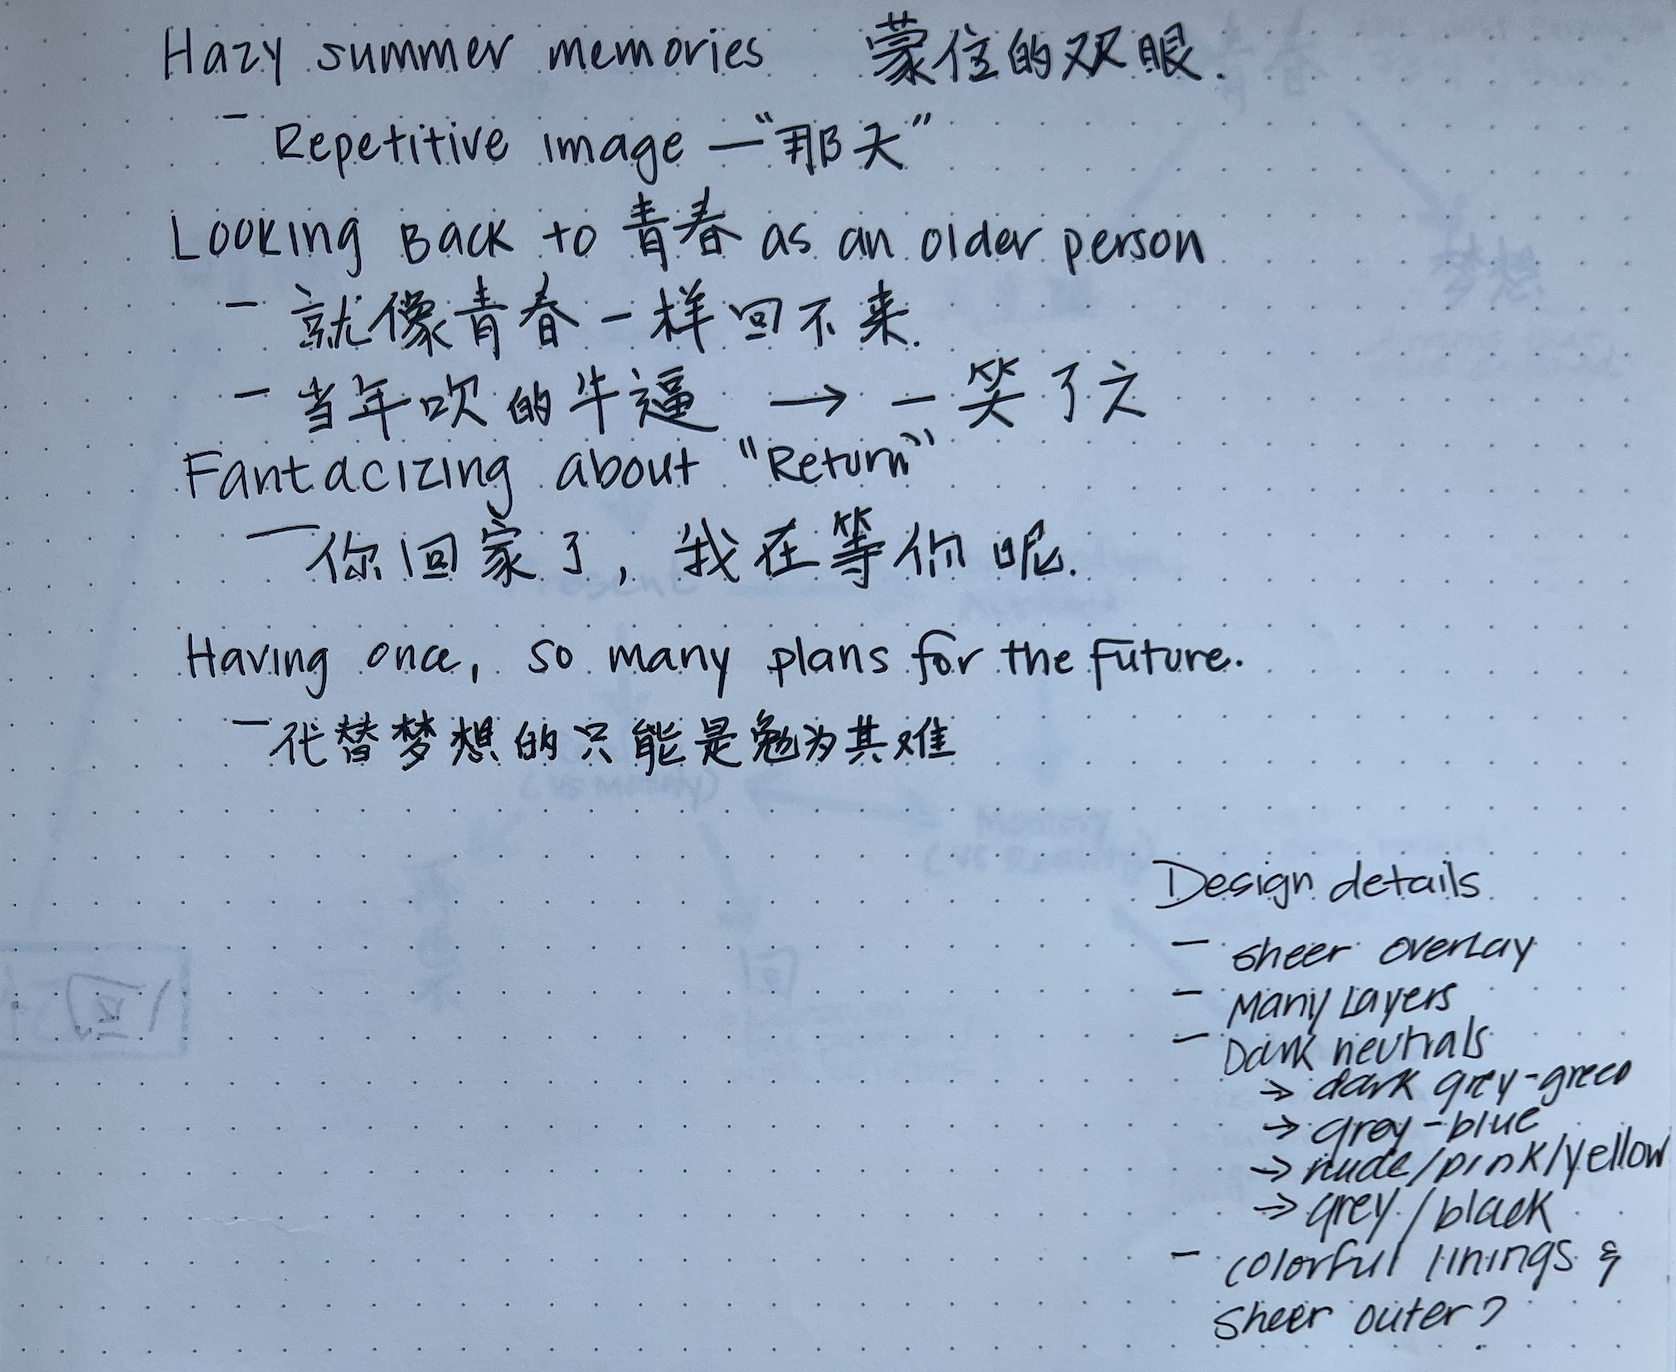 Hazy summer memories 蒙住的双眼.
- Repetitive image — "那天"
Looking Back to 青春 as an older person
- 就像青春一样回不来.
- 当年吹的牛逼 → 一笑了之
Fantacizing about "Return"
- 你回家了, 我在等你呢.
Having once, so many plans for the future.
- 代替梦想的只能是勉为其难
Design details
- sheer overlay
- Many Layers
- Dark neutrals
→ dark grey-green
→ grey-blue
→ nude/pink/yellow
→ grey/black
- colorful linings &
sheer outer?